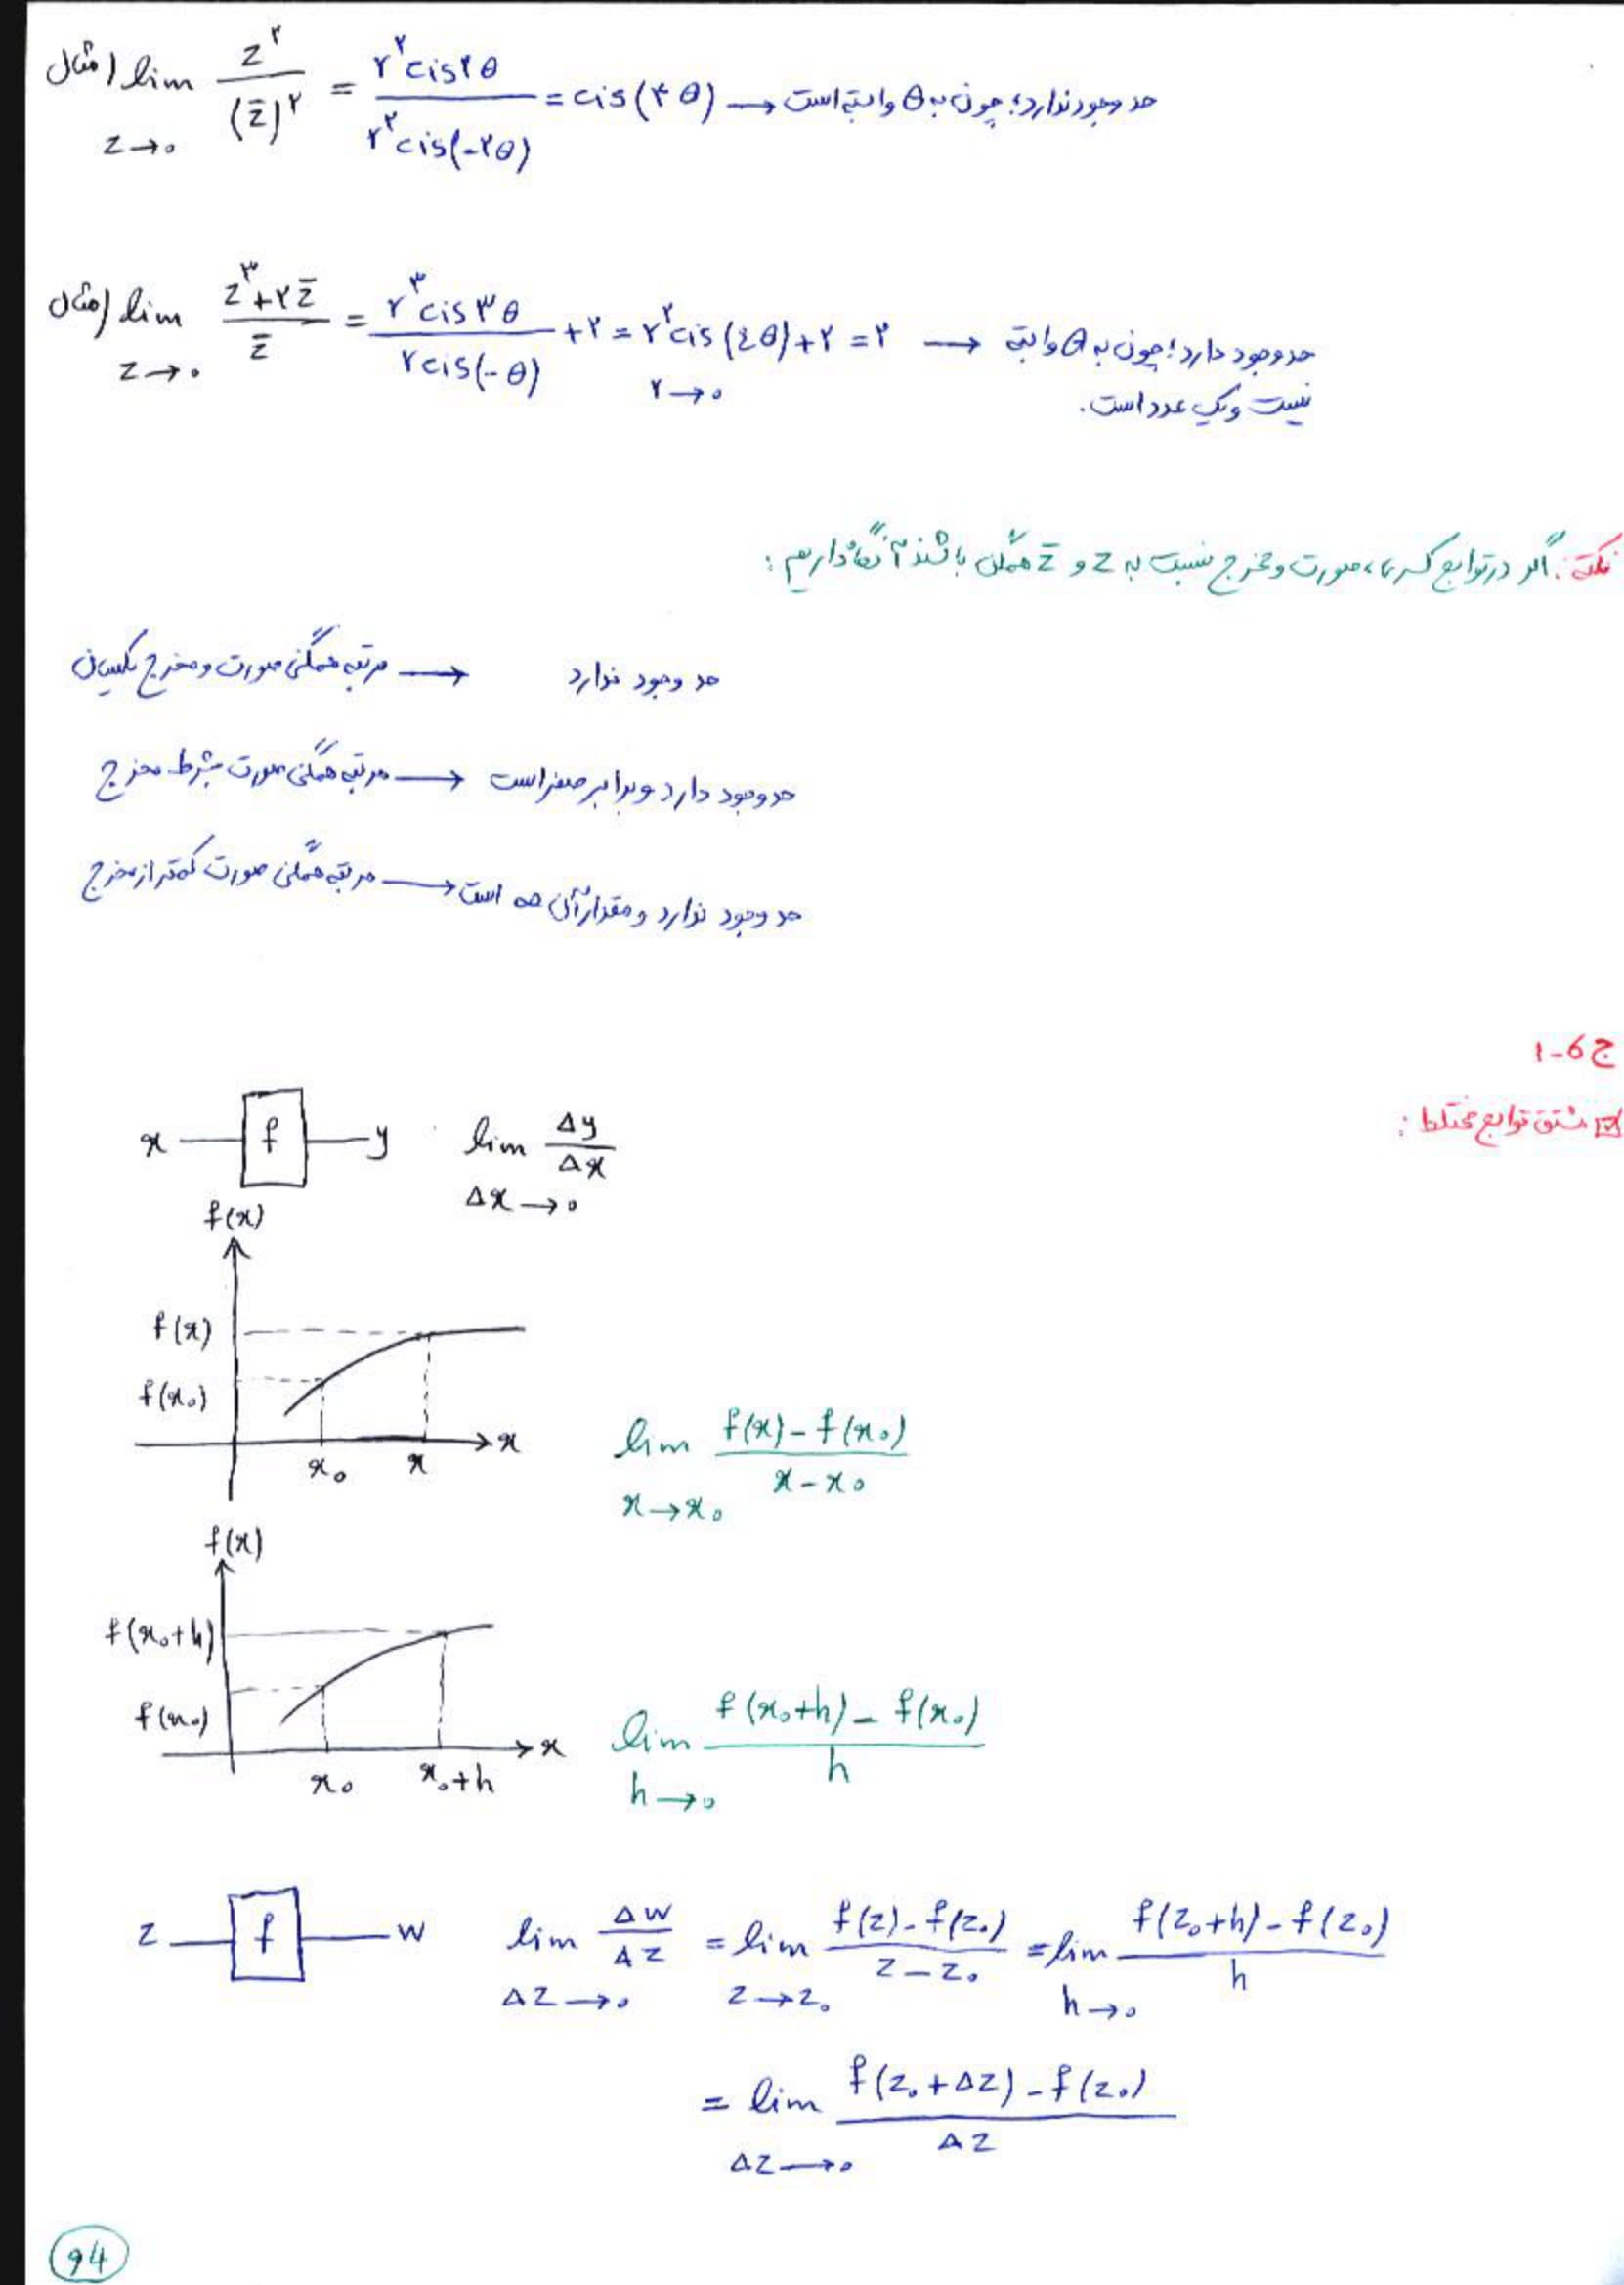 مثال) lim z→0 z^۲ / (z̄)^۲ = r^۲ cis ۲θ / r^۲ cis(-۲θ) = cis(۴θ) → حد وجود ندارد؛ چون به θ وابسته است
مثال) lim z→0 (z^۳ + ۲z̄) / z̄ = r^۳ cis ۳θ / r cis(-θ) + ۲ = r^۲ cis(۴θ) + ۲ = ۲ → حد وجود دارد؛ چون به θ وابسته
r→0
نیست و یک عدد است.
نکته: اگر در توابع کسری، صورت و مخرج نسبت به z و z̄ همگن باشند آنگاه داریم:
مرتبه همگنی صورت و مخرج یکسان → حد وجود ندارد
مرتبه همگنی صورت بیشتر مخرج → حد وجود دارد و برابر صفر است
مرتبه همگنی صورت کمتر از مخرج → حد وجود ندارد و مقدار آن ∞ است
ج 6-1
مشتق توابع مختلط:
x f y lim Δx→0 Δy / Δx
f(x)
f(x)
f(x₀)
x
x₀ x
lim x→x₀ (f(x) - f(x₀)) / (x - x₀)
f(x)
f(x₀+h)
f(x₀)
x
x₀ x₀+h
lim h→0 (f(x₀+h) - f(x₀)) / h
z f w lim Δz→0 Δw / Δz = lim z→z₀ (f(z) - f(z₀)) / (z - z₀) = lim h→0 (f(z₀+h) - f(z₀)) / h
= lim Δz→0 (f(z₀+Δz) - f(z₀)) / Δz
94